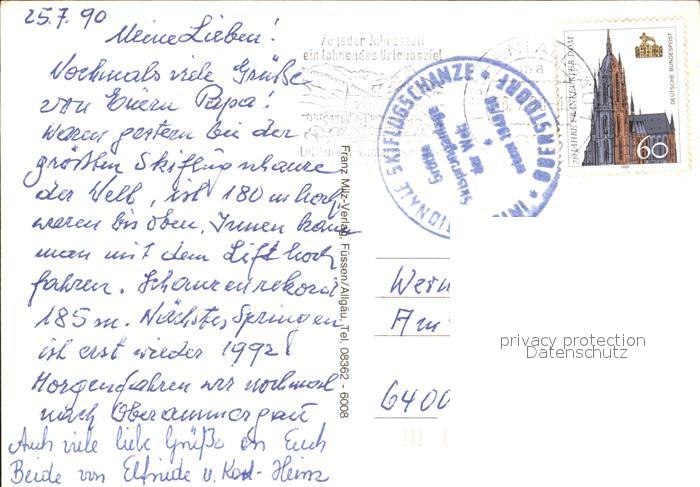 25.7.90
Meine Lieben!
Nochmals viele Grüße
von Euern Papa!
Waren gestern bei der
größten Skiflugschanze
der Welt, ist 180 m hoch,
waren bis oben. Innen kann
man mit dem Lift hoch
fahren. Schanzenrekord
185 m. Nächstes Springen
ist erst wieder 1992!
Morgen fahren wir nochmal
nach Oberammergau
Auch viele liebe Grüße an Euch
Beide von Elfriede u. Karl-Heinz
Zu jeder Jahreszeit
ein lohnendes Urlaubsziel
Franz Milz-Verlag, Füssen/Allgäu, Tel. 08362 - 6008
SKIFLUGSCHANZE * OBERSTDORF *
der Welt
erbaut 1949/50
750 JAHRE FRANKFURTER DOM
DEUTSCHE BUNDESPOST
60
1989
Wern
Am
6400
privacy protection
Datenschutz